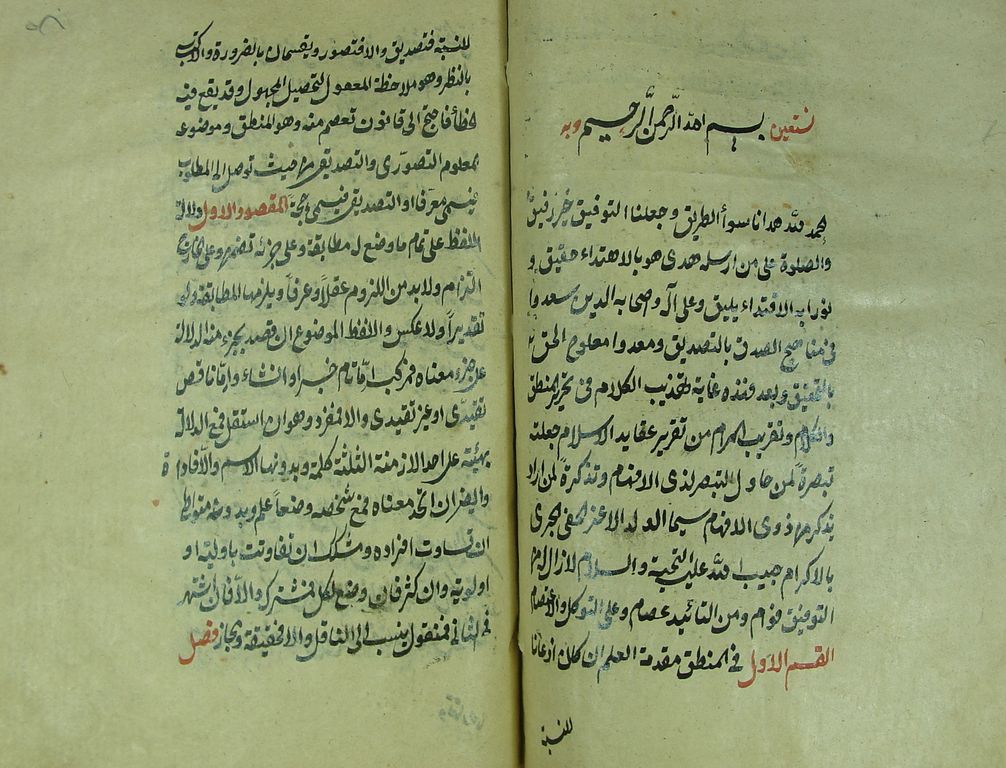 بسم الله الرحمن الرحيم وبه نستعين
الحمد لله هدانا سواء الطريق وجعل لنا التوفيق خير رفيق
والصلوة على من ارسله هدى هو بالاهتداء حقيق و
نورا به الاقتداء يليق وعلى آله واصحابه الدين سعدوا
فى مناهج الصدق بالتصديق وصعدوا معارج الحق
بالتحقيق وبعد فهذه غاية تهذيب الكلام فى تحرير المنطق
والكلام وتقريب المرام من تقرير عقايد الاسلام جعلته
تبصرة لمن حاول التبصر لذى الافهام وتذكرة لمن اراد
يتذكر من ذوى الافهام سيما الولد الاعز الحفى الحرى
بالاكرام حبيب الله عليه التحية والسلام لازال له من
التوفيق قوام ومن التائيد عصام وعلى التوكل والاعتصام
القسم الاول فى المنطق مقدمة العلم ان كان اذعانا
للنسبة
للنسبة فتصديق والا فتصور ويقتسمان بالضرورة والاكتساب
بالنظر وهو ملاحظة المعقول لتحصيل المجهول وقد يقع فيه
الخطأ فاحتيج الى قانون تعصم منه وهو المنطق وموضوعه
المعلوم التصورى والتصديقى من حيث توصل الى المطلوب
فيسمى معرفا او التصديقى فيسمى حجة المقصود الاول دلالة
اللفظ على تمام ما وضع له مطابقة وعلى جزئه تضمن وعلى الخارج
التزام ولابد من اللزوم عقلا وعرفا ويلزمها المطابقة ولو
تقديرا ولا عكس واللفظ الموضوع ان قصد بجزء منه الدلالة
على جزء معناه فمركب اما تام خبر او انشاء واما ناقص
تقييدى او غير تقييدى والا فمفرد وهو ان استقل فمع الدلالة
بهيئته على احد الازمنة الثلثة كلمة وبدونها الاسم والا فاداة
وايضا ان اتحد معناه فمع تشخصه وضعا علم وبدونه متواط
ان تساوت افراده ومشكك ان تفاوتت باولية او
اولوية وان كثر فان وضع لكل فمشترك والا فان اشتهر
فى الثانى فمنقول ينسب الى الناقل والا فحقيقة ومجاز فصل